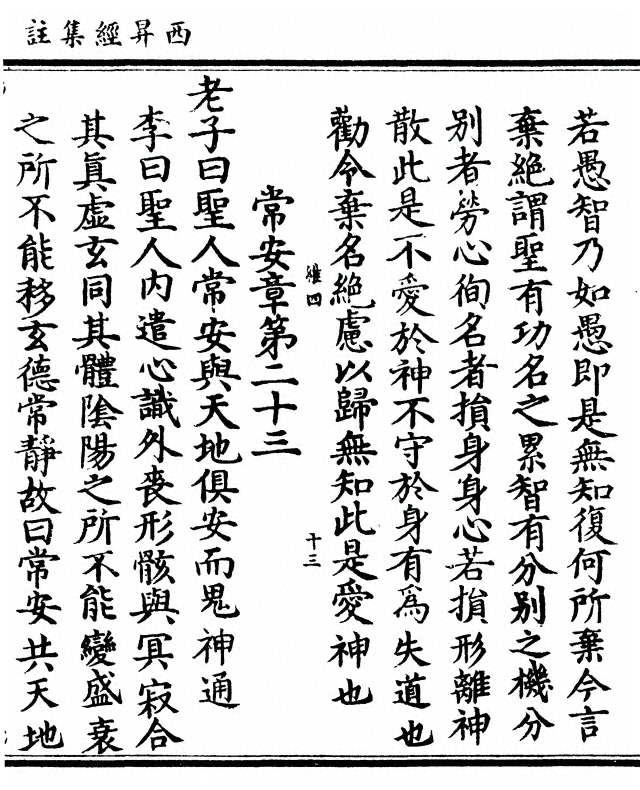 西昇經集註
若愚智乃如愚即是無知復何所棄今言
棄絕謂聖有功名之累智有分别之機分
别者勞心徇名者損身身心若損形離神
散此是不愛於神不守於身有爲失道也
勸令棄名絕慮以歸無知此是愛神也
維四 十三
常安章第二十三
老子曰聖人常安與天地俱安而鬼神通
李曰聖人内遣心識外喪形骸與冥寂合
其眞虚玄同其體陰陽之所不能變盛衰
之所不能移玄德常靜故曰常安共天地